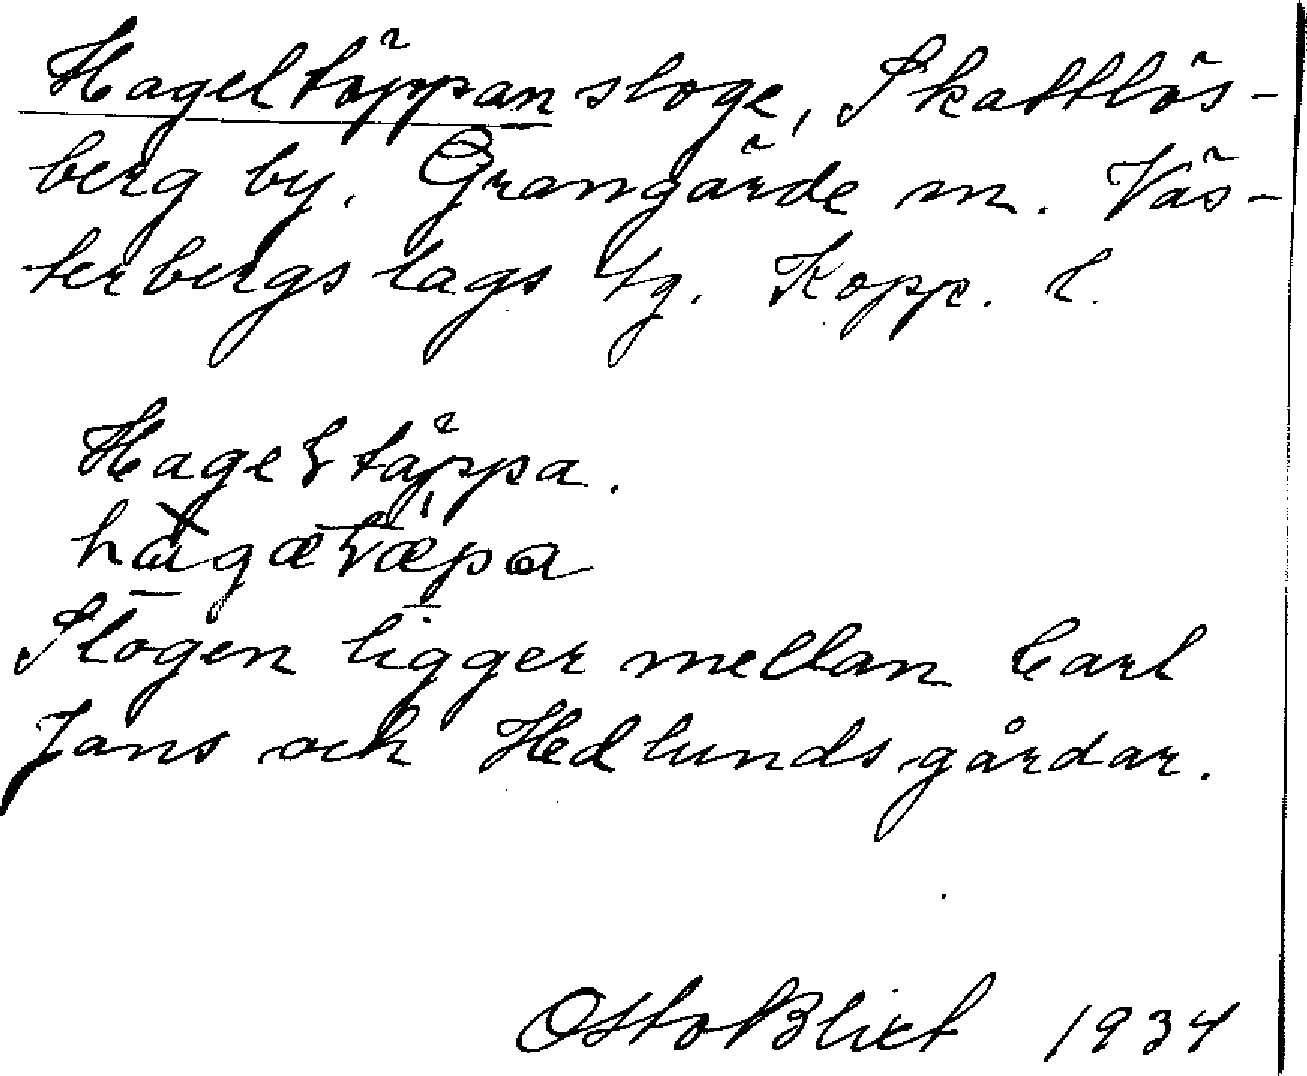 Hageltäppan sloge, Skattlös-
berg by. Grangärde sn. Väs-
terbergslags tg. Kopp. l.
Hageltäppa.
Slogen ligger mellan Carl
Jans och Hedlunds gårdar.
Otto Blixt 1934